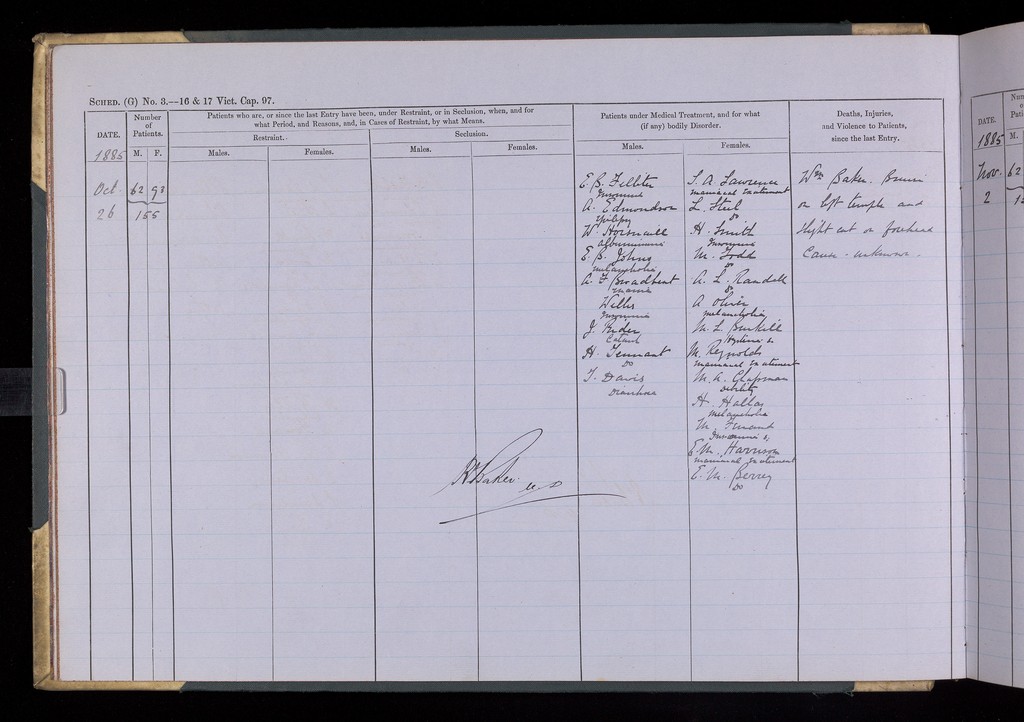 SCHED. (G) No. 3.—16 & 17 Vict. Cap. 97.
DATE.
Number of Patients.
Patients who are, or since the last Entry have been, under Restraint, or in Seclusion, when, and for
what Period, and Reasons, and, in Cases of Restraint, by what Means.
Restraint.
Seclusion.
Patients under Medical Treatment, and for what
(if any) bodily Disorder.
Deaths, Injuries,
and Violence to Patients,
since the last Entry.
1885
M. F.
Males. Females. Males. Females. Males. Females.
Oct. 62 93
26 155
E. B. Filliter
Insomnia
A. Edmondson
Epilepsy
W
Albuminuria
E. B. Johns
melancholia
A. F Broadbent
mania
Willis
Insomnia
J. Rider
H. Tennant
Do
T. Davis
Diarrhoea
S. A. Lawrence
maniacal excitement
L. Steel
Do
H. Smith
Insomnia
M. Todd
Do
A. L. Randall
Do
A Oliver
melancholia
M. L. Burkill
M. Reynolds
maniacal excitement
M. A. Chapman
Debility
H. Hallas
melancholia
M.
Insomnia
E. M. Harrison
maniacal excitement
E. M. Berrey
Do
Wm Baker. Bruise
on left temple and
slight cut on forehead
Cause - unknown.
R Baker
DATE.
1885 M.
Nov. 62
2